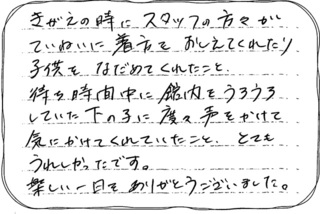 きがえの時にスタッフの方々が
ていねいに着方をおしえてくれたり
子供をなだめてくれたこと、
待ち時間中に館内をうろうろ
していた下の子に度々声をかけて
気にかけてくれていたこと、とても
うれしかったです。
楽しい一日をありがとうございました。